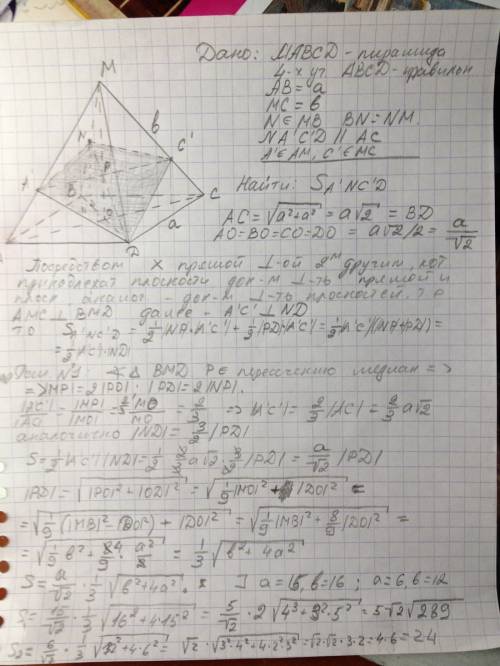 Дано: MABCD – пирамида
4-х уг. ABCD – правильн
AB = a
MC = b
N∈MB  BN=NM
NA'C'D || AC
A'∈AM, C'∈MC
Найти: S A'NC'D
AC = √(a²+a²) = a√2 = BD
AO=BO=CO=DO = a√2/2 = a/√2
M
N
b
C'
A'
P
B
O
C
a
D
Посредством прямой ⊥-ой 2м другим, кот
принадлежат плоскости док-м ⊥-ть прямой и
плоск аналог – док-м ⊥-ть плоскостей, т.о
AMC ⊥ BMD далее – A'C' ⊥ ND
т.о S A'NC'D = 1/2|NP|·|A'C'| + 1/2|PD|·|A'C'| = 1/2|A'C'|(|NP|+|PD|) =
= 1/2|A'C'|·|ND|
△ BMD P∈ пересечению медиан =>
=> |MP| = 2|PO| ; |PD| = 2|NP|.
|A'C'|/|AC| = |MP|/|MO| = 2/3 MO/MO = 2/3 => |A'C'| = 2/3|AC| = 2/3 a√2
аналогично |ND| = 3/2|PD|
S = 1/2|A'C'||ND| = 1/2 · 2/3 a√2 · 3/2|PD| = a/√2 |PD|
|PD| = √(|PO|²+|OD|²) = √(1/9|MO|² + |DO|²) =
= √(1/9(|MB|²-|BO|²) + |DO|²) = √(1/9|MB|² + 8/9|DO|²) =
= √(1/9 b² + 8/9 · a²/2) = 1/3 √(b² + 4a²)
S = a/√2 · 1/3 √(b²+4a²). a=15, b=16 ; a=6, b=12
S₁ = 15/√2 · 1/3 √(16²+4·15²) = 5/√2 · 2√(4³+3²·5²) = 5√2 √289
S₂ = 6/√2 · 1/3 √(12²+4·6²) = √2 · √(3²·4²+4·2²·3²) = √2·√2·3·2·4·6 = 24